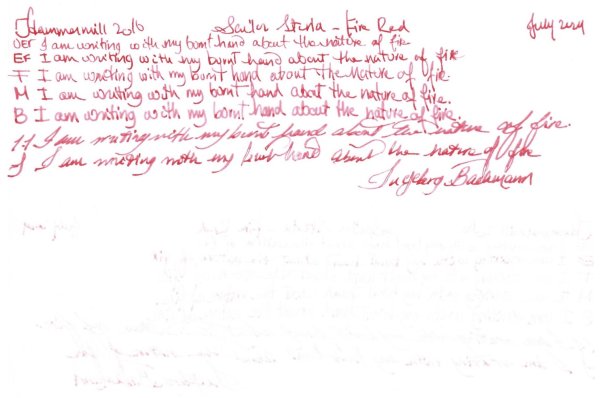 Hammermill 20lb Sailor Studio - Fire Red July 2024
UEF I am writing with my burnt hand about the nature of fire
EF I am writing with my burnt hand about the nature of fire
F I am writing with my burnt hand about the nature of fire.
M I am writing with my burnt hand about the nature of fire.
B I am writing with my burnt hand about the nature of fire.
1.1 I am writing with my burnt hand about the nature of fire.
J I am writing with my burnt hand about the nature of fire
Ingeborg Bachmann